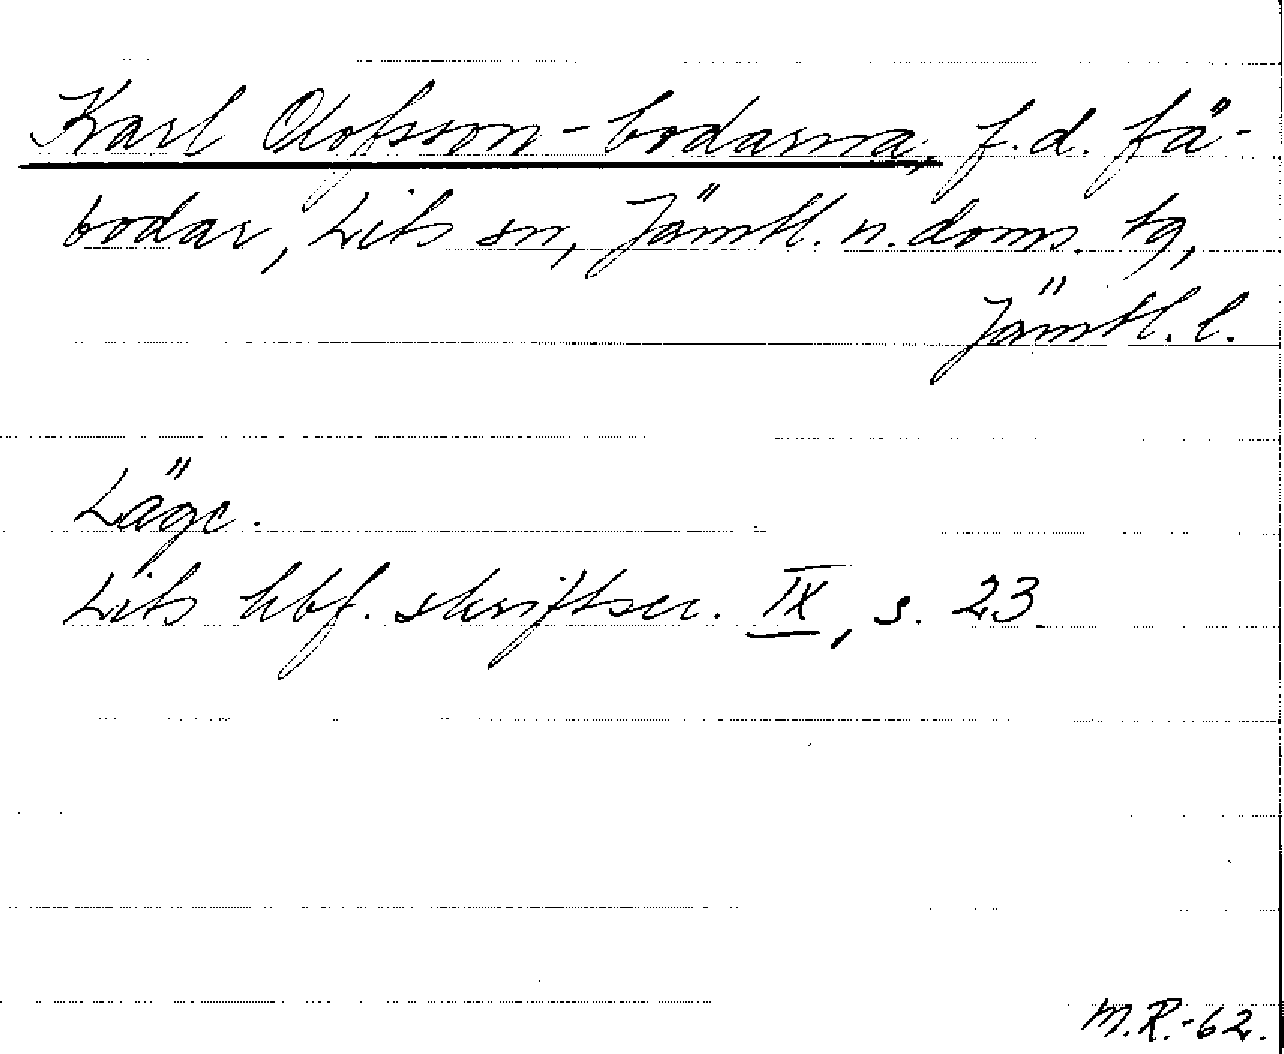 Karl Olofsson-bodarna, f.d. fä-
bodar, Lits sn, Jämtl. n. doms. tg,
Jämtl. l.
Läge.
Lits hbf. skriftser. IX, s. 23
M.R.-62.